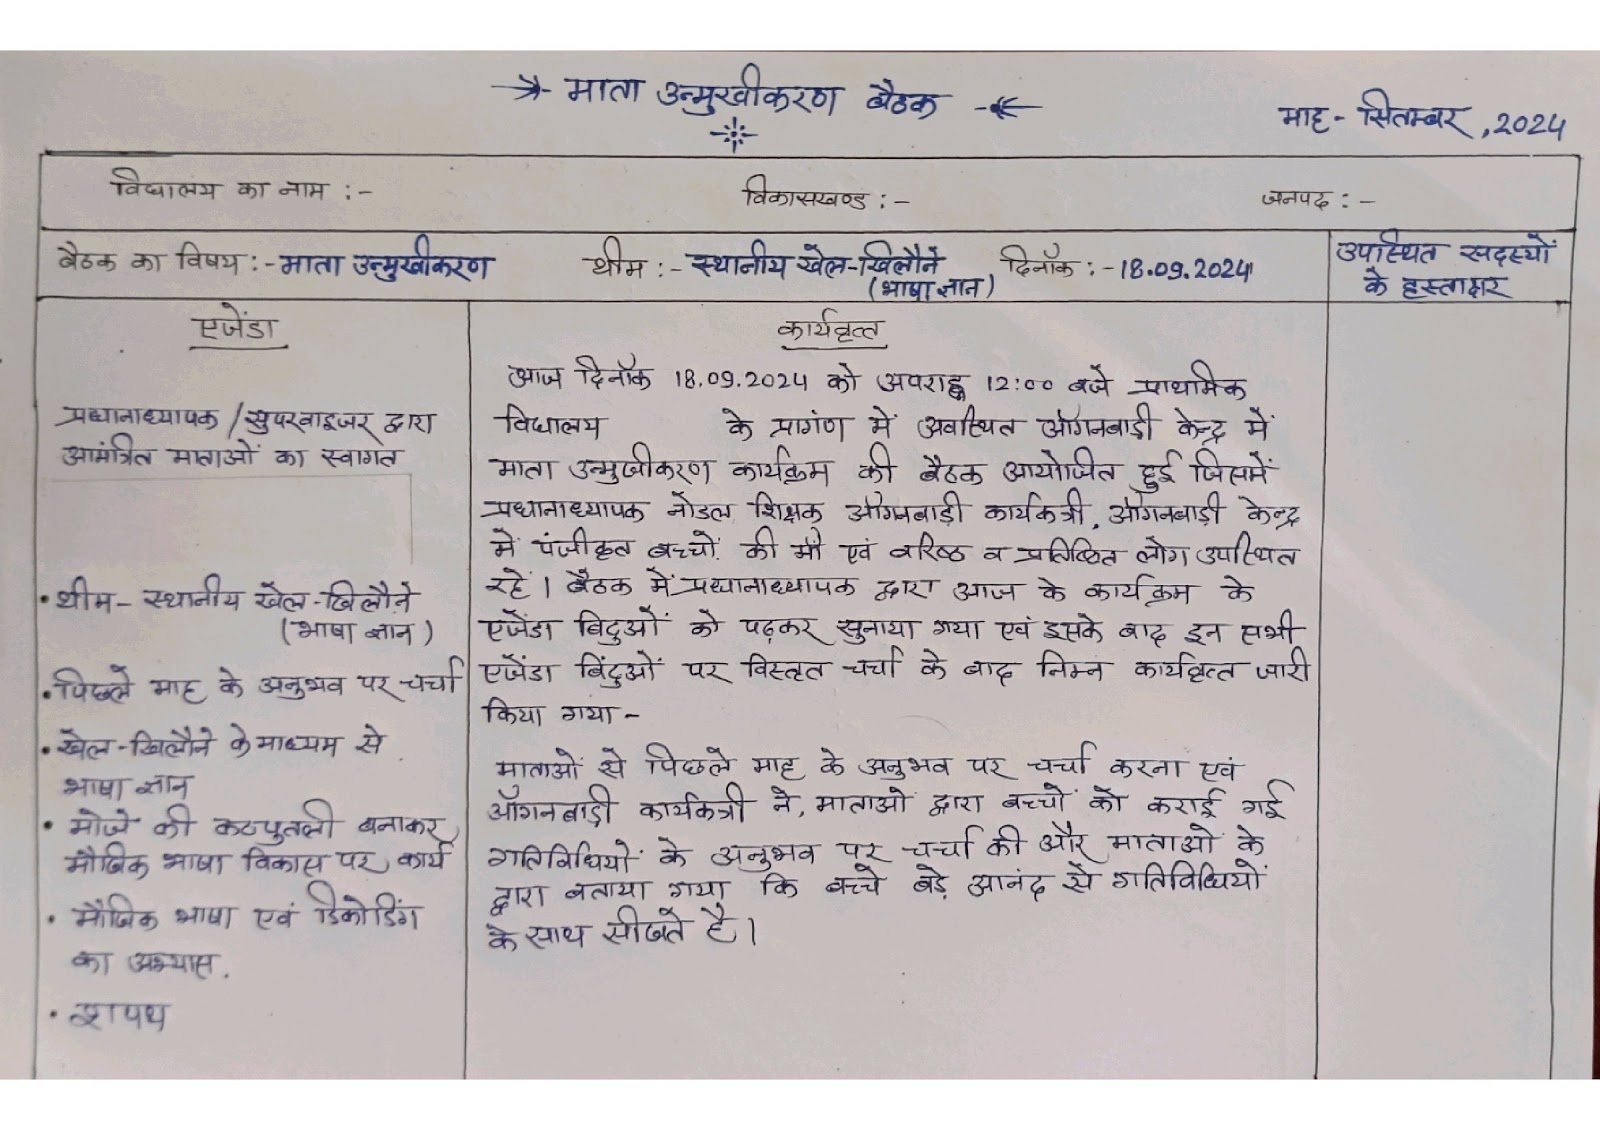 माता उन्मुखीकरण बैठक
माह - सितम्बर, 2024
विद्यालय का नाम :-
विकासखण्ड :-
जनपद :-
बैठक का विषय :- माता उन्मुखीकरण
थीम :- स्थानीय खेल-खिलौने
(भाषा ज्ञान)
दिनाँक :- 18.09.2024
उपस्थित सदस्यों
के हस्ताक्षर
एजेंडा
प्रधानाध्यापक / सुपरवाइजर द्वारा
आमंत्रित माताओं का स्वागत
• थीम - स्थानीय खेल-खिलौने
(भाषा ज्ञान)
• पिछले माह के अनुभव पर चर्चा
• खेल-खिलौने के माध्यम से
भाषा ज्ञान
• मोजे की कठपुतली बनाकर
मौखिक भाषा विकास पर कार्य
• मौखिक भाषा एवं डिकोडिंग
का अभ्यास.
• शपथ
कार्यवृत्त
आज दिनाँक 18.09.2024 को अपराह्न 12:00 बजे प्राथमिक
विद्यालय के प्रागंण में अवस्थित आँगनबाड़ी केन्द्र में
माता उन्मुखीकरण कार्यक्रम की बैठक आयोजित हुई जिसमें
प्रधानाध्यापक नोडल शिक्षक आँगनबाड़ी कार्यकत्री, आँगनबाड़ी केन्द्र
में पंजीकृत बच्चों की माँ एवं वरिष्ठ व प्रतिष्ठित लोग उपस्थित
रहें। बैठक में प्रधानाध्यापक द्वारा आज के कार्यक्रम के
एजेंडा बिंदुओं को पढ़कर सुनाया गया एवं इसके बाद इन सभी
एजेंडा बिंदुओं पर विस्तृत चर्चा के बाद निम्न कार्यवृत्त जारी
किया गया -
माताओं से पिछले माह के अनुभव पर चर्चा करना एवं
आँगनबाड़ी कार्यकत्री ने, माताओं द्वारा बच्चों को कराई गई
गतिविधियों के अनुभव पर चर्चा की और माताओं के
द्वारा बताया गया कि बच्चे बड़े आनंद से गतिविधियों
के साथ सीखते है।